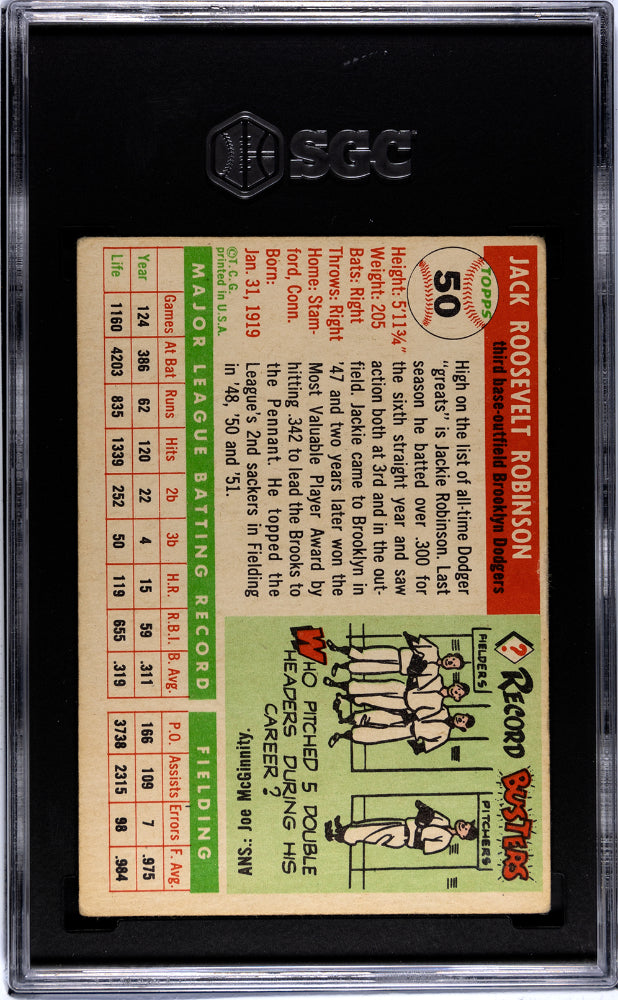 SGC
JACK ROOSEVELT ROBINSON
third base-outfield Brooklyn Dodgers
TOPPS
50
Height: 5'11¾"
Weight: 205
Bats: Right
Throws: Right
Home: Stam-
ford, Conn.
Born:
Jan. 31, 1919
©T.C.G.
printed in U.S.A.
High on the list of all-time Dodger
"greats" is Jackie Robinson. Last
season he batted over .300 for
the sixth straight year and saw
action both at 3rd and in the out-
field. Jackie came to Brooklyn in
'47 and two years later won the
Most Valuable Player Award by
hitting .342 to lead the Brooks to
the Pennant. He topped the
League's 2nd sackers in Fielding
in '48, '50 and '51.
?
RECORD BUSTERS
FIELDERS
PITCHERS
WHO PITCHED 5 DOUBLE
HEADERS DURING HIS
CAREER?
ANS: Joe McGinnity.
MAJOR LEAGUE BATTING RECORD
FIELDING
Games At Bat Runs Hits 2b 3b H.R. R.B.I. B. Avg. P.O. Assists Errors F. Avg.
Year 124 386 62 120 22 4 15 59 .311 166 109 7 .975
Life 1160 4203 835 1339 252 50 119 655 .319 3738 2315 98 .984